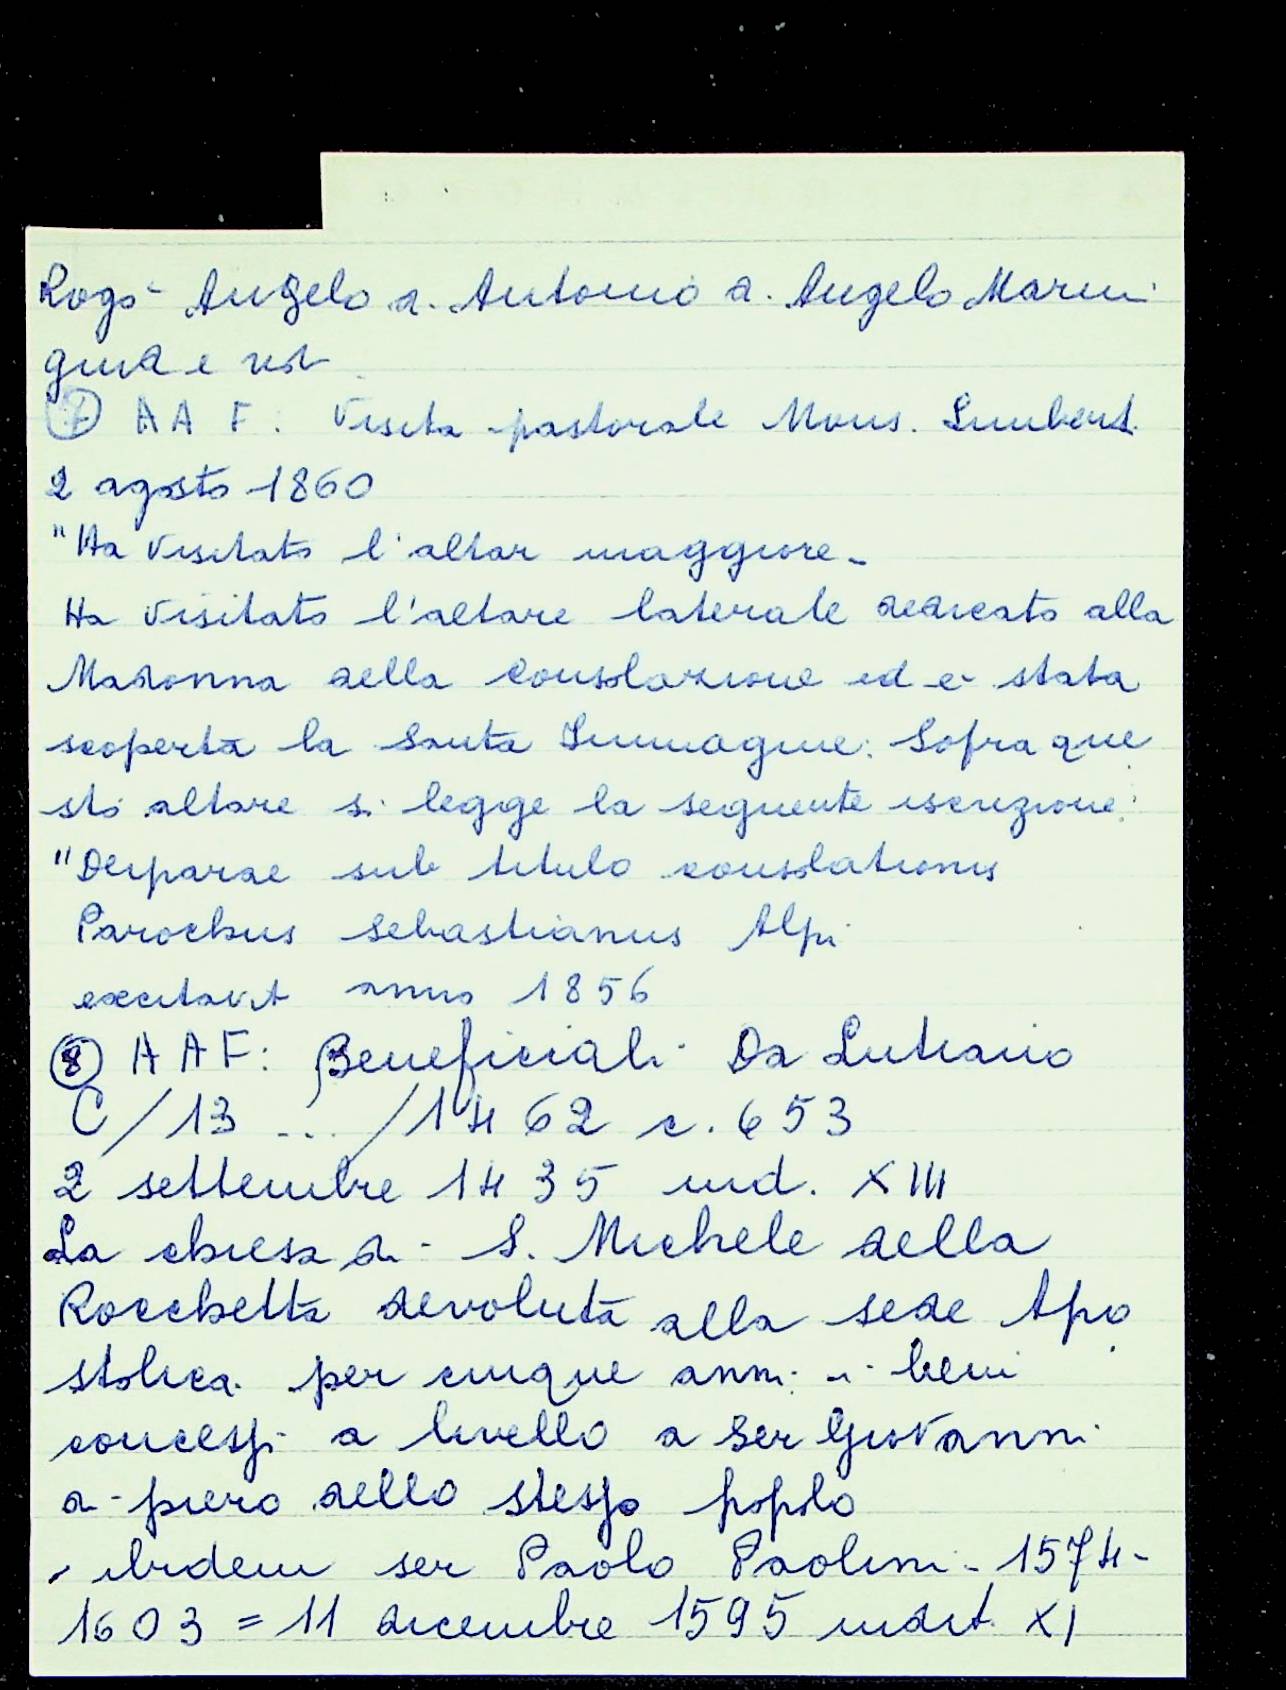 Rogò Angelo d. Antonio d. Angelo Marini
giud e not
⑦ AAF: Visita pastorale Mons. Limberti
2 agosto 1860
"Ha visitato l'altar maggiore -
Ha visitato l'altare laterale dedicato alla
Madonna della Consolazione ed e- stata
scoperta la Santa Immagine: Sopra que
sto altare si legge la seguente iscrizione:
"Deiparae sub titulo consolationis
Parochus Sebastianus Alpi
excitavit anno 1856
⑧ AAF: Beneficiali Da Lutiano
C/13 .../1462 c. 653
2 settembre 1435 ind. XIII
La chiesa di S. Michele della
Rocchetta devoluta alla sede Apo
stolica per cinque anni i beni
concessi a livello a Ser Giovanni
di piero dello stesso popolo
, ibidem ser Paolo Paolini - 1574-
1603 = 11 dicembre 1595 indit. XI